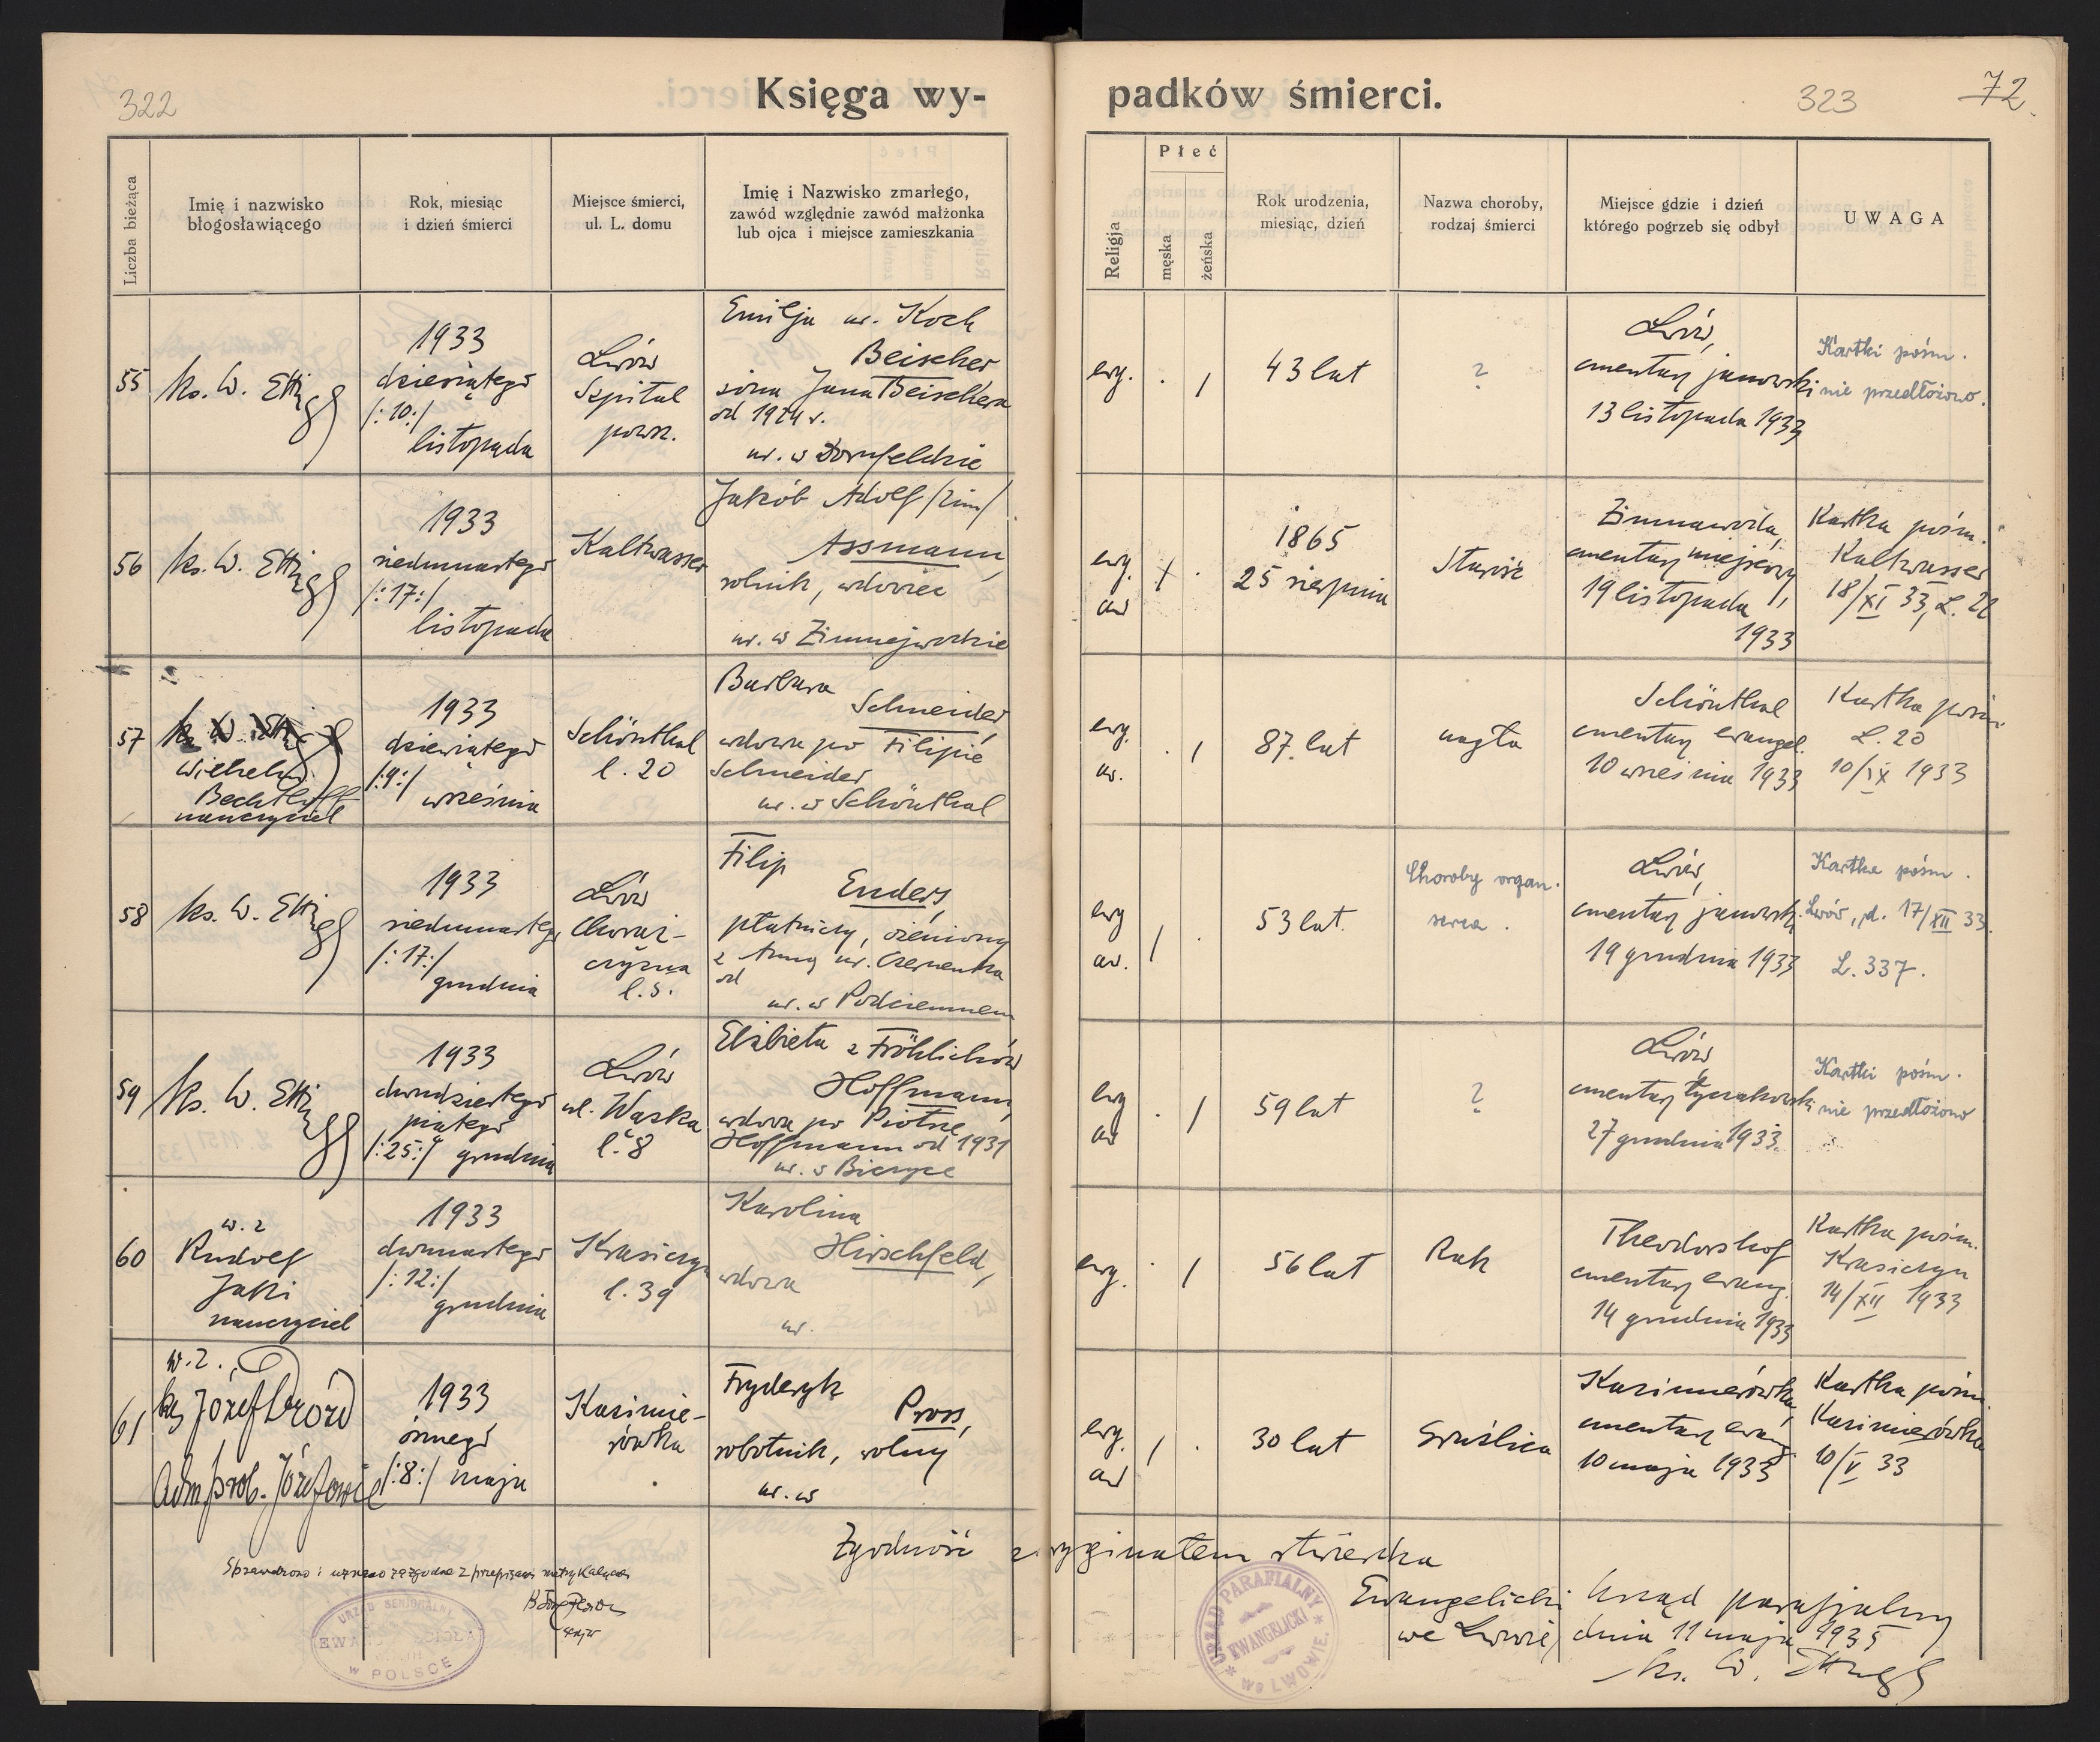 322
Księga wy-
padków śmierci.
323
72
Liczba bieżąca
Imię i nazwisko
błogosławiącego
Rok, miesiąc
i dzień śmierci
Miejsce śmierci,
ul. L. domu
Imię i Nazwisko zmarłego,
zawód względnie zawód małżonka
lub ojca i miejsce zamieszkania
Religja
Płeć
męska
żeńska
Rok urodzenia,
miesiąc, dzień
Nazwa choroby,
rodzaj śmierci
Miejsce gdzie i dzień
którego pogrzeb się odbył
UWAGA
55
ks. W. Ettinger
1933
dziesiątego
/:10:/
listopada
Lwów
Szpital
powsz.
Emilja ur. Koch
Beischer
żona Jana Beischera
od 1924 r.
ur. w Dornfeldzie
ewg.
. /
43 lat
?
Lwów,
cmentarz janowski
13 listopada 1933
Kartki pośm.
nie przedłożono.
56
ks. W. Ettinger
1933
siedmnastego
/:17:/
listopada
Kaltwasser
Jakób Adolf /2im/
Assmann,
rolnik, wdowiec
ur. w Zimnejwodzie
ewg.
aw
/ .
1865
25 sierpnia
Starość
Zimnawoda,
cmentarz miejscowy,
19 listopada
1933
Kartka pośm.
Kaltwasser
18/XI 33, L. 22
57
Wilhelm
Bechtloff
nauczyciel
1933
dziewiątego
/:9:/
września
Schönthal
l. 20
Barbara
Schneider,
wdowa po Filipie
Schneider
ur. w Schönthal
ewg.
aw.
. /
87 lat
nagła
Schönthal
cmentarz ewangel.
10 września 1933
Kartka pośm
L. 20
10/IX 1933
58
ks. W. Ettinger
1933
siedmnastego
/:17:/
grudnia
Lwów
Chorąż-
czyzna
l. 5.
Filip
Enders,
płatniczy, ożeniony
z Anną ur. Czernenka
od
ur. w Podciemnem
ewg
aw.
/ .
53 lat.
Choroby organ.
serca.
Lwów,
cmentarz janowski.
19 grudnia 1933
Kartka pośm.
Lwów, d. 17/XII 33.
L. 337.
59
ks. W. Ettinger
1933
dwudziestego
piątego
/:25:/ grudnia
Lwów
ul. Wąska
l. 8
Elżbieta z Fröhlichów
Hoffmann,
wdowa po Piotrze
Hoffmann od 1931
ur. w
ewg
aw
. /
59 lat
?
Lwów
cmentarz łyczakowski
27 grudnia 1933.
Kartki pośm.
nie przedłożono
60
w. z
Rudolf
Jaki
nauczyciel
1933
dwunastego
/:12:/
grudnia
Krasiczyn
l. 39
Karolina
Hirschfeld,
wdowa
ur.
ewg.
. /
56 lat
Rak
Theodorshof
cmentarz ewang.
14 grudnia 1933
Kartka pośm.
Krasiczyn
14/XII 1933
61
w. z.
ks Józef Drózd
Adm. prob. Józefowie
1933
ósmego
/:8:/ maja
Kazimie-
rówka
Fryderyk
Pross,
robotnik, wolny
ur. w
ewg.
aw
/ .
30 lat
Gruźlica
Kazimierówka,
cmentarz ewang.
10 maja 1933
Kartka pośm.
Kazimierówka
10/V 33
Zgodność z oryginałem stwierdza
Ewangelicki Urząd parafjalny
we Lwowie, dnia 11 maja 1935
ks. W. Ettinger
Sprawdzono i uznano za zgodne z przepisami metrykalnemi
URZĄD SENJORALNY
W POLSCE
URZĄD PARAFIALNY
EWANGELICKI
* We LWOWIE. *